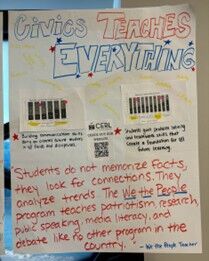 Civics TEACHES
EVERYTHING
CERL
Building communication skills
Students do not memorize facts,
they look for connections. They
analyze trends. The We the People
program teaches patriotism, research,
public speaking, media literacy, and
debate like no other program in the
country.
- We the People Teacher
★ Students gain problem solving
and teamwork skills that
create a foundation for all
future learning.